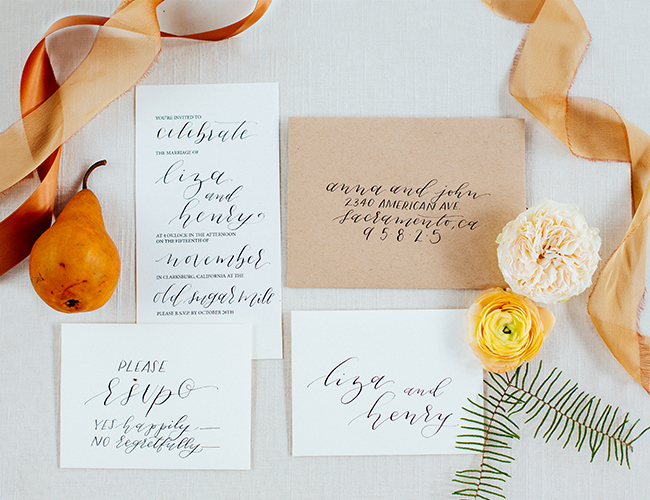 YOU'RE INVITED TO
celebrate
THE MARRIAGE OF
liza
and
henry
AT 4 O'CLOCK IN THE AFTERNOON
ON THE FIFTEENTH OF
november
IN CLARKSBURG, CALIFORNIA AT THE
old sugar mill
PLEASE R.S.V.P. BY OCTOBER 20TH
anna and john
2340 AMERICAN AVE.
sacramento, ca
95825
PLEASE
rsvp
YES happily,
NO regretfully
liza and
henry